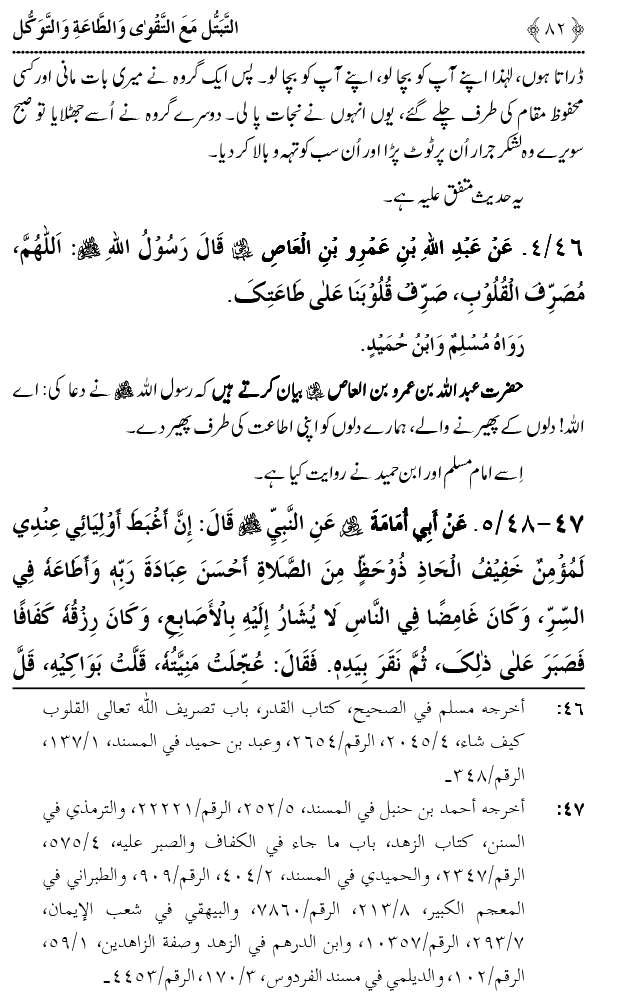 ﴿۸۲﴾ التَّبَتُّل مَعَ التَّقْوٰی وَالطَّاعَةِ وَالتَّوَكُّل
ڈراتا ہوں، لہٰذا اپنے آپ کو بچا لو، اپنے آپ کو بچا لو۔ پس ایک گروہ نے میری بات مانی اور کسی
محفوظ مقام کی طرف چلے گئے، یوں انہوں نے نجات پا لی۔ دوسرے گروہ نے اُسے جھٹلایا تو صبح
سویرے وہ لشکر جرار اُن پر ٹوٹ پڑا اور اُن سب کو تہہ و بالا کر دیا۔
یہ حدیث متفق علیہ ہے۔
٤/٤٦. عَنْ عَبْدِ اللهِ بْنِ عَمْرِو بْنِ الْعَاصِ ﷠ قَالَ رَسُوْلُ اللهِ ﷺ: اَللّٰهُمَّ،
مُصَرِّفَ الْقُلُوْبِ، صَرِّفْ قُلُوْبَنَا عَلٰی طَاعَتِکَ.
رَوَاهُ مُسْلِمٌ وَابْنُ حُمَيْدٍ.
حضرت عبد اللہ بن عمرو بن العاص ﷠ بیان کرتے ہیں کہ رسول اللہ ﷺ نے دعا کی: اے
اللہ! دلوں کے پھیرنے والے، ہمارے دلوں کو اپنی اطاعت کی طرف پھیر دے۔
اِسے امام مسلم اور ابن حمید نے روایت کیا ہے۔
٤٧-٥/٤٨. عَنْ أَبِي أُمَامَةَ ﷜ عَنِ النَّبِيِّ ﷺ قَالَ: إِنَّ أَغْبَطَ أَوْلِيَائِي عِنْدِي
لَمُؤْمِنٌ خَفِيْفُ الْحَاذِ ذُوْحَظٍّ مِنَ الصَّلَاةِ أَحْسَنَ عِبَادَةَ رَبِّهٖ وَأَطَاعَهٗ فِي
السِّرِّ، وَكَانَ غَامِضًا فِي النَّاسِ لَا يُشَارُ إِلَيْهِ بِالْأَصَابِعِ، وَكَانَ رِزْقُهٗ كَفَافًا
فَصَبَرَ عَلٰی ذٰلِکَ، ثُمَّ نَقَرَ بِيَدِهٖ. فَقَالَ: عُجِّلَتْ مَنِيَّتُهٗ، قَلَّتْ بَوَاكِيْهِ، قَلَّ
٤٦: أخرجه مسلم في الصحيح، كتاب القدر، باب تصريف الله تعالى القلوب
كيف شاء، ٢٠٤٥/٤، الرقم/٢٦٥٤، وعبد بن حميد في المسند، ١٣٧/١،
الرقم/٣٤٨۔
٤٧: أخرجه أحمد بن حنبل في المسند، ٢٥٢/٥، الرقم/٢٢٢٢١، والترمذي في
السنن، كتاب الزهد، باب ما جاء في الكفاف والصبر عليه، ٥٧٥/٤،
الرقم/٢٣٤٧، والحميدي في المسند، ٤٠٤/٢، الرقم/٩٠٩، والطبراني في
المعجم الكبير، ٢١٣/٨، الرقم/٧٨٦٠، والبيهقي في شعب الإيمان،
٢٩٣/٧، الرقم/١٠٣٥٧، وابن الدرهم في الزهد وصفة الزاهدين، ٥٩/١،
الرقم/١٠٢، والديلمي في مسند الفردوس، ١٧٠/٣، الرقم/٤٤٥٣۔